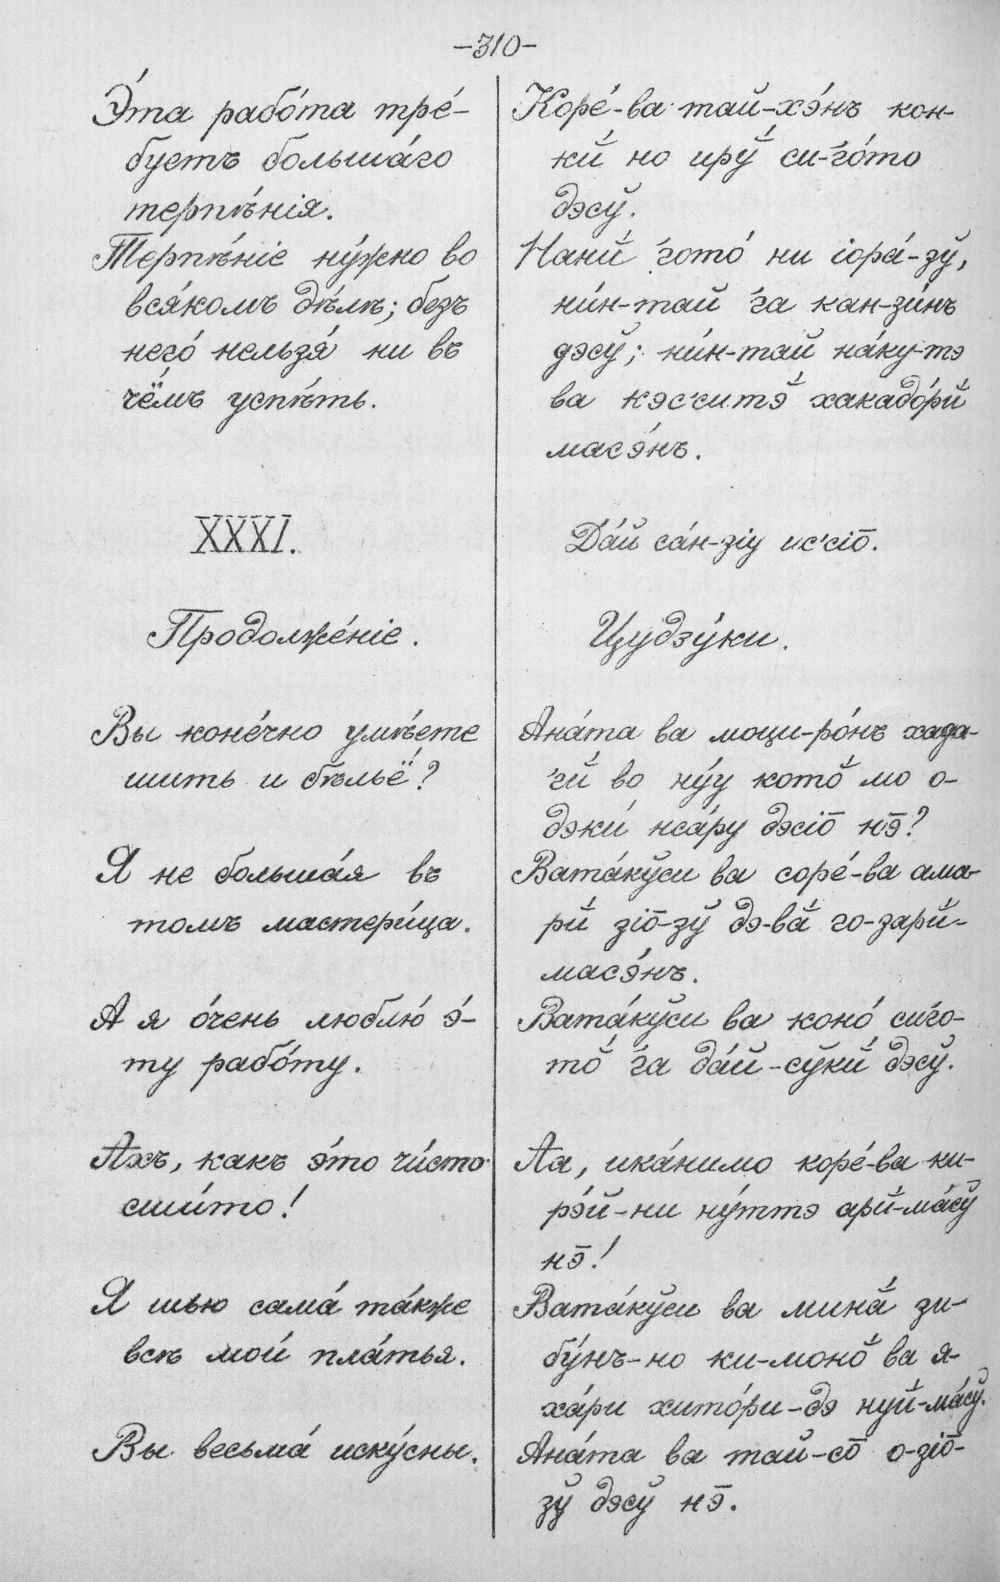 –310–
Э́та рабо́та тре́-
буетъ большо́го
терпѣ́нія.
Терпѣ́ніе ну́жно во
вся́комъ дѣ́лѣ; безъ
него́ нельзя́ ни въ
чёмъ успѣ́ть.
XXXI.
Продолже́ніе.
Вы коне́чно умѣ́ете
шить и бѣльё?
Я не больша́я въ
томъ мастери́ца.
А я о́чень люблю́ э́-
ту рабо́ту.
Ахъ, какъ э́то чи́сто
сши́то!
Я шью сама́ та́кже
всѣ мои́ пла́тья.
Вы весьма́ иску́сны.
Коре́-ва тай-хэ́нъ кон-
кй́ но ирў́ си-го́то
дэсў.
Нанй́ гото́ ни іора́-зў,
ни́н-тай га кан-зи́нъ
дэсў; ни́н-тай на́ку-тэ
ва кэс'ситэ̆́ хакадо́рй
масэ́нъ.
Да́й са́н-зіу ис'сіо̄.
Цудзу́ки.
Ана́та ва моци-ро́нъ хада-
гй́ во ну́у кото̆́ мо о-
дэки́ нса́ру дэсіо̄ нэ̄?
Вата́кўси ва соре́-ва ама-
рй́ зіо̄-зў дэ-вӑ́ го-зарй́-
масэ́нъ.
Вата́кўси ва коно́ сиго-
то̆́ га да́й-сўкй́ дэсў.
Аа, ика́нимо коре́-ва ки-
рэ́й-ни ну́ттэ арй́-ма́сў
нэ̄!
Вата́кўси ва минӑ́ зи-
бу́нъ-но ки-моно̆́ ва я-
ха́ри хито́ри-дэ нуй-ма́сў.
Ана́та ва тай-со̄ о-зіо̄-
зў дэсў нэ̄.